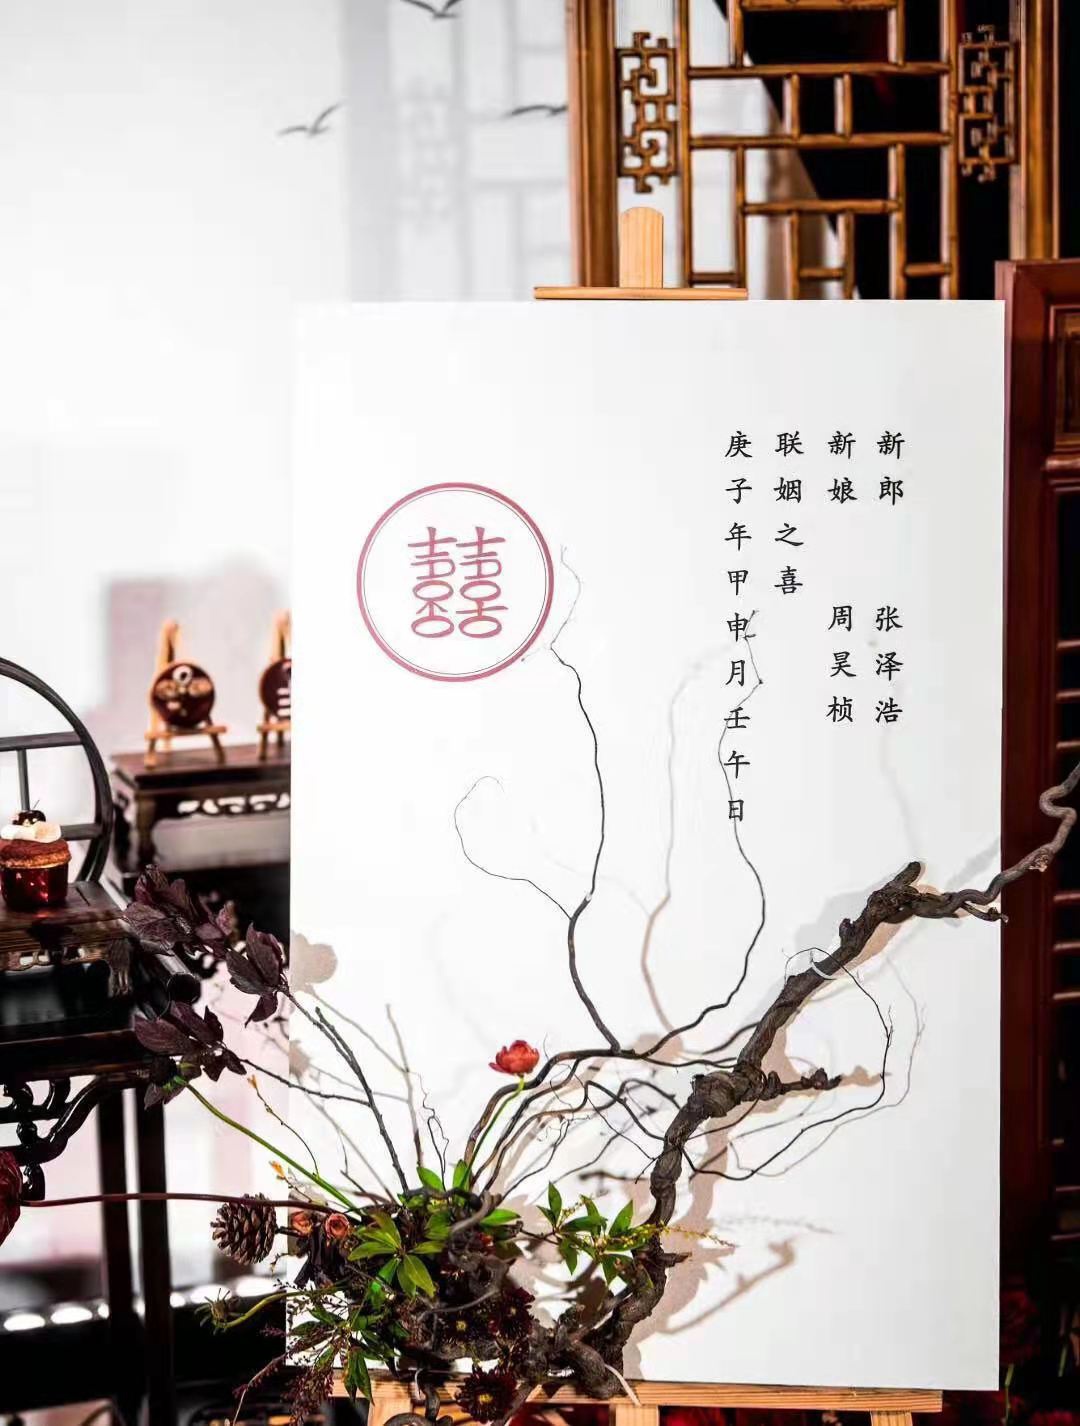 新郎 张泽浩
新娘 周昊桢
联姻之喜
庚子年甲申月壬午日
囍